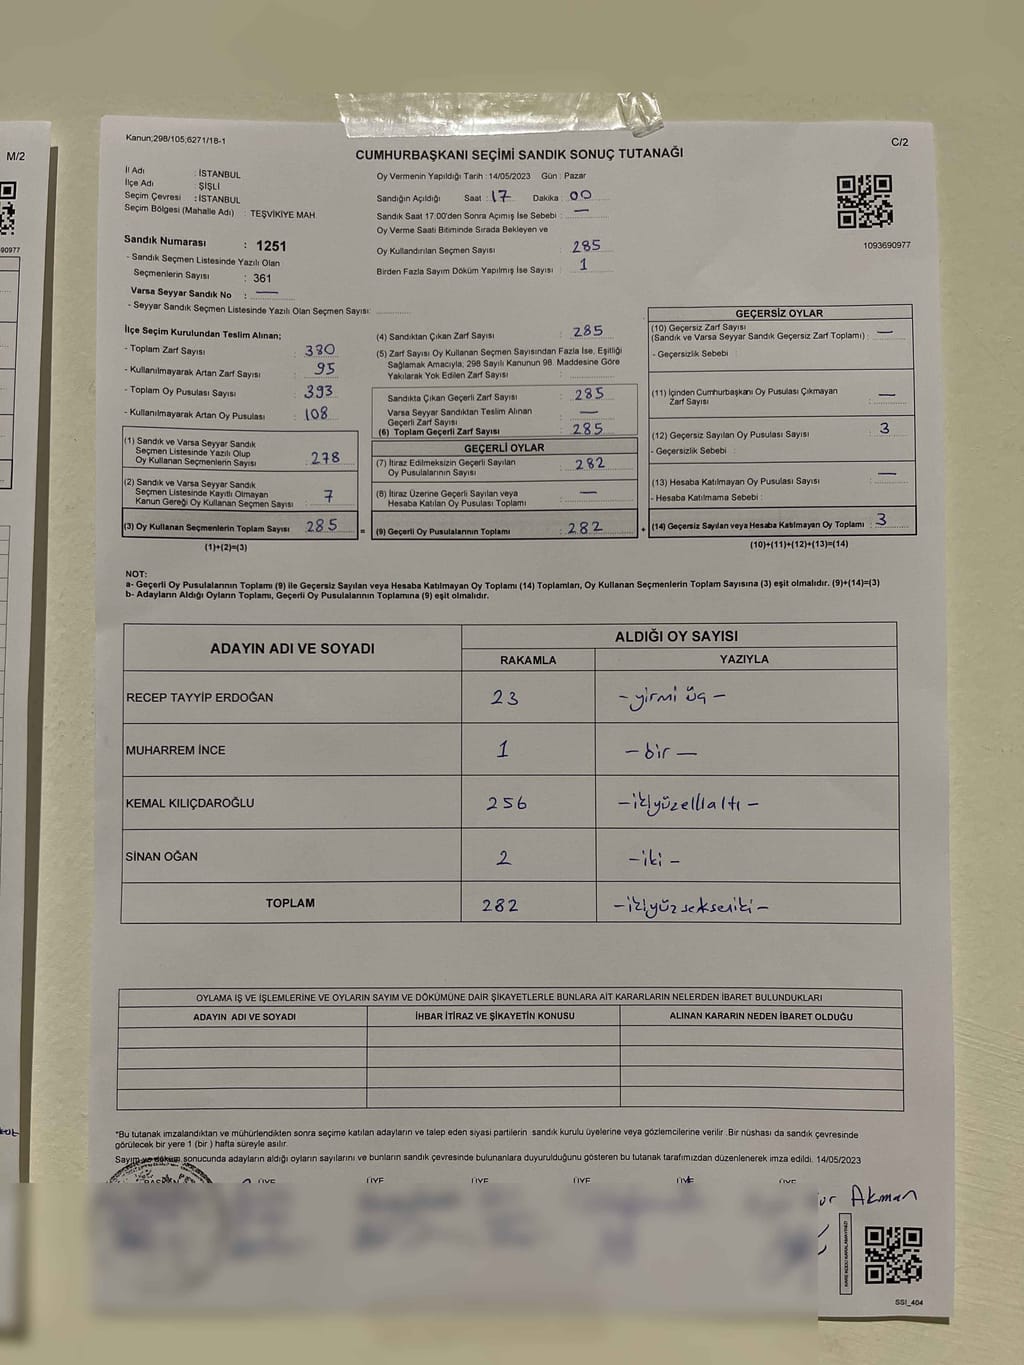 M/2
90977
Kanun;298/105;6271/18-1
C/2
CUMHURBAŞKANI SEÇİMİ SANDIK SONUÇ TUTANAĞI
İl Adı : İSTANBUL
İlçe Adı : ŞİŞLİ
Seçim Çevresi : İSTANBUL
Seçim Bölgesi (Mahalle Adı) : TEŞVİKİYE MAH.
Sandık Numarası : 1251
- Sandık Seçmen Listesinde Yazılı Olan
Seçmenlerin Sayısı : 361
Varsa Seyyar Sandık No : —
- Seyyar Sandık Seçmen Listesinde Yazılı Olan Seçmen Sayısı:
Oy Vermenin Yapıldığı Tarih : 14/05/2023 Gün : Pazar
Sandığın Açıldığı Saat : 17 Dakika : 00
Sandık Saat 17.00'den Sonra Açımış İse Sebebi : —
Oy Verme Saati Bitiminde Sırada Bekleyen ve
Oy Kullandırılan Seçmen Sayısı : 285
Birden Fazla Sayım Döküm Yapılmış İse Sayısı : 1
1093690977
İlçe Seçim Kurulundan Teslim Alınan;
- Toplam Zarf Sayısı : 380
- Kullanılmayarak Artan Zarf Sayısı : 95
- Toplam Oy Pusulası Sayısı : 393
- Kullanılmayarak Artan Oy Pusulası : 108
(1) Sandık ve Varsa Seyyar Sandık
Seçmen Listesinde Yazılı Olup
Oy Kullanan Seçmenlerin Sayısı : 278
(2) Sandık ve Varsa Seyyar Sandık
Seçmen Listesinde Kayıtlı Olmayan
Kanun Gereği Oy Kullanan Seçmen Sayısı : 7
(3) Oy Kullanan Seçmenlerin Toplam Sayısı : 285 =
(1)+(2)=(3)
(4) Sandıktan Çıkan Zarf Sayısı : 285
(5) Zarf Sayısı Oy Kullanan Seçmen Sayısından Fazla İse, Eşitliği
Sağlamak Amacıyla, 298 Sayılı Kanunun 98. Maddesine Göre
Yakılarak Yok Edilen Zarf Sayısı :
Sandıkta Çıkan Geçerli Zarf Sayısı : 285
Varsa Seyyar Sandıktan Teslim Alınan
Geçerli Zarf Sayısı : —
(6) Toplam Geçerli Zarf Sayısı : 285
GEÇERLİ OYLAR
(7) İtiraz Edilmeksizin Geçerli Sayılan
Oy Pusulalarının Sayısı : 282
(8) İtiraz Üzerine Geçerli Sayılan veya
Hesaba Katılan Oy Pusulası Toplamı : —
(9) Geçerli Oy Pusulalarının Toplamı : 282 +
GEÇERSİZ OYLAR
(10) Geçersiz Zarf Sayısı
(Sandık ve Varsa Seyyar Sandık Geçersiz Zarf Toplamı) : —
- Geçersizlik Sebebi :
(11) İçinden Cumhurbaşkanı Oy Pusulası Çıkmayan
Zarf Sayısı : —
(12) Geçersiz Sayılan Oy Pusulası Sayısı : 3
- Geçersizlik Sebebi :
(13) Hesaba Katılmayan Oy Pusulası Sayısı : —
- Hesaba Katılmama Sebebi :
(14) Geçersiz Sayılan veya Hesaba Katılmayan Oy Toplamı : 3
(10)+(11)+(12)+(13)=(14)
NOT:
a- Geçerli Oy Pusulalarının Toplamı (9) ile Geçersiz Sayılan veya Hesaba Katılmayan Oy Toplamı (14) Toplamları, Oy Kullanan Seçmenlerin Toplam Sayısına (3) eşit olmalıdır. (9)+(14)=(3)
b- Adayların Aldığı Oyların Toplamı, Geçerli Oy Pusulalarının Toplamına (9) eşit olmalıdır.
ADAYIN ADI VE SOYADI ALDIĞI OY SAYISI
RAKAMLA YAZIYLA
RECEP TAYYİP ERDOĞAN 23 - yirmi üç -
MUHARREM İNCE 1 - bir -
KEMAL KILIÇDAROĞLU 256 - ikiyüzellialtı -
SİNAN OĞAN 2 - iki -
TOPLAM 282 - ikiyüz sekseniki -
OYLAMA İŞ VE İŞLEMLERİNE VE OYLARIN SAYIM VE DÖKÜMÜNE DAİR ŞİKAYETLERLE BUNLARA AİT KARARLARIN NELERDEN İBARET BULUNDUKLARI
ADAYIN ADI VE SOYADI İHBAR İTİRAZ VE ŞİKAYETİN KONUSU ALINAN KARARIN NEDEN İBARET OLDUĞU
*Bu tutanak imzalandıktan ve mühürlendikten sonra seçime katılan adayların ve talep eden siyasi partilerin sandık kurulu üyelerine veya gözlemcilerine verilir .Bir nüshası da sandık çevresinde
görülecek bir yere 1 (bir ) hafta süreyle asılır.
Sayım ve döküm sonucunda adayların aldığı oyların sayılarını ve bunların sandık çevresinde bulunanlara duyurulduğunu gösteren bu tutanak tarafımızdan düzenlenerek imza edildi. 14/05/2023
BAŞKAN ÜYE ÜYE ÜYE ÜYE ÜYE ÜYE
Akman
SSI_404